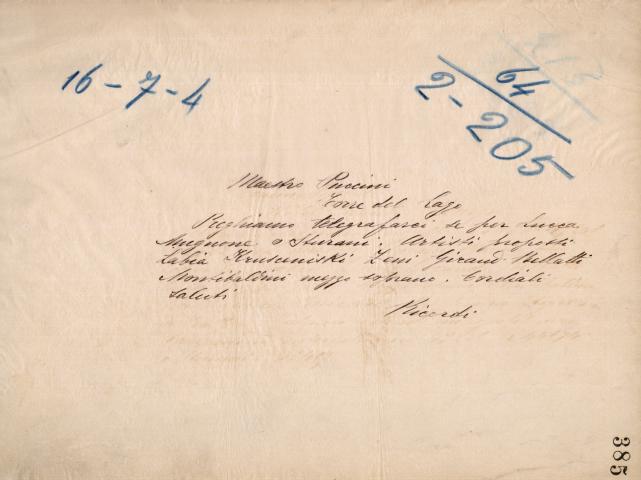 16-7-4
64
2-205
Maestro Puccini
Torre del Lago
Preghiamo telegrafarci se per Lucca
Mugnone o Sturani. Artisti proposti
Labia Krusceniski Zeni Giraud
Montibaldini mezzo soprano. Cordiali
saluti
Ricordi
385